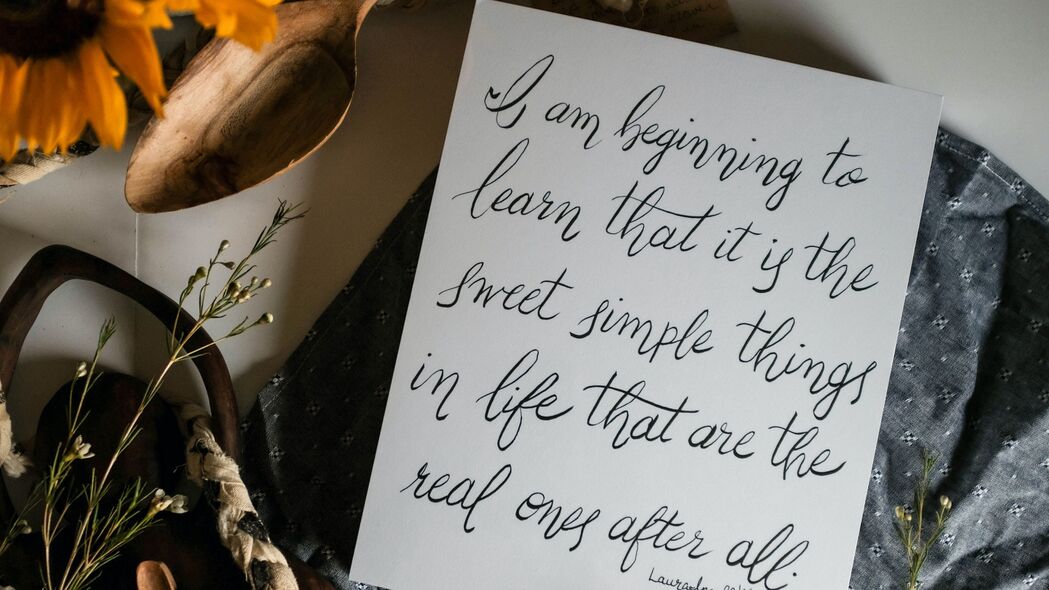 I am beginning to
learn that it is the
sweet simple things
in life that are the
real ones after all.